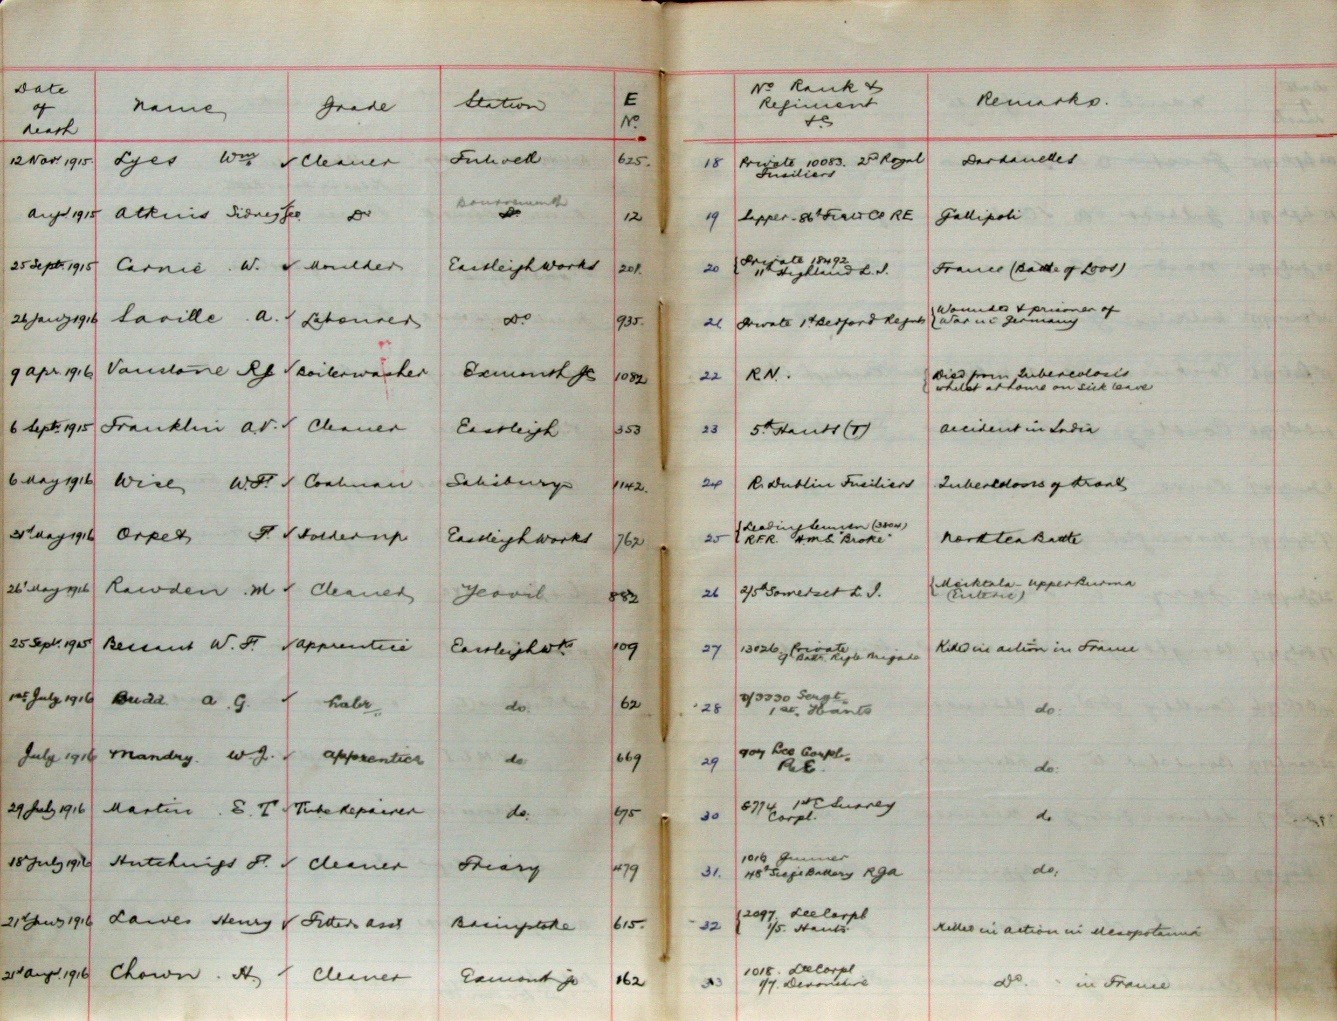 Date of Death Name Grade Station E No. No. Rank & Regiment &c Remarks.
12 Nov. 1915 Lyes Wm ✓ Cleaner Fulwell 625. 18 Private 10083. 2nd Royal Fusiliers Dardanelles
Augt 1915 Atkins Sidney Do Bournemouth 12 19 Sapper - 86th Field Co RE Gallipoli
25 Sept. 1915 Carnie W. ✓ Moulder Eastleigh Works 201. 20 Private 18492 11th Highland L.I. France (Battle of Loos)
26 Jany 1916 Saville A. ✓ Labourer Do 935. 21 Private 1st Bedford Regmt Wounded & prisoner of War in Germany
9 Apr 1916 Vanstone RJ ✓ Boilerwasher Exmouth Jc 1082 22 R.N. Died from Tuberculosis whilst at home on sick leave
6 Sept. 1915 Franklin A.V. ✓ Cleaner Eastleigh 353 23 5th Hants (T) Accident in India
6 May 1916 Wise W.F. ✓ Coalman Salisbury 1142. 24 R. Dublin Fusiliers Tuberculosis of
31st May 1916 Orpet F. ✓ Holder up Eastleigh Works 762 25 Leading Seaman (3304) R.F.R. H.M.S. "Broke" North Sea Battle
26th May 1916 Rawden M ✓ Cleaner Yeovil 882 26 2/5th Somerset L.I. Meiktala - Upper Burma (Enteric)
25 Sept. 1915 Bessant W.F. ✓ Apprentice Eastleigh Wks 109 27 13026 Private 9 Battn Rifle Brigade Killed in action in France
1st July 1916 Budd A.G. ✓ Labr. do. 62 28 3/3330 Sergt. 1st. Hants do.
July 1916 Mandry. W.J. ✓ Apprentice do 669 29 907 Lce Corpl. R.E. do.
29 July 1916 Martin E.T ✓ Tube Repairer do. 675 30 6774 1st E Surrey Corpl. do
18th July 1916 Hutchings F. ✓ Cleaner Friary 479 31. 1016 Gunner 48th Siege Battery RGA do.
21st Jany 1916 Lawes Henry ✓ Fitters asst Basingstoke 615. 32 2097. Lce Corpl 1/5. Hants Killed in action in Mesopotamia
21st Augt. 1916 Chown H. ✓ Cleaner Exmouth Jc 162 33 1018. Lce Corpl 1/7. Devonshire Do. in France